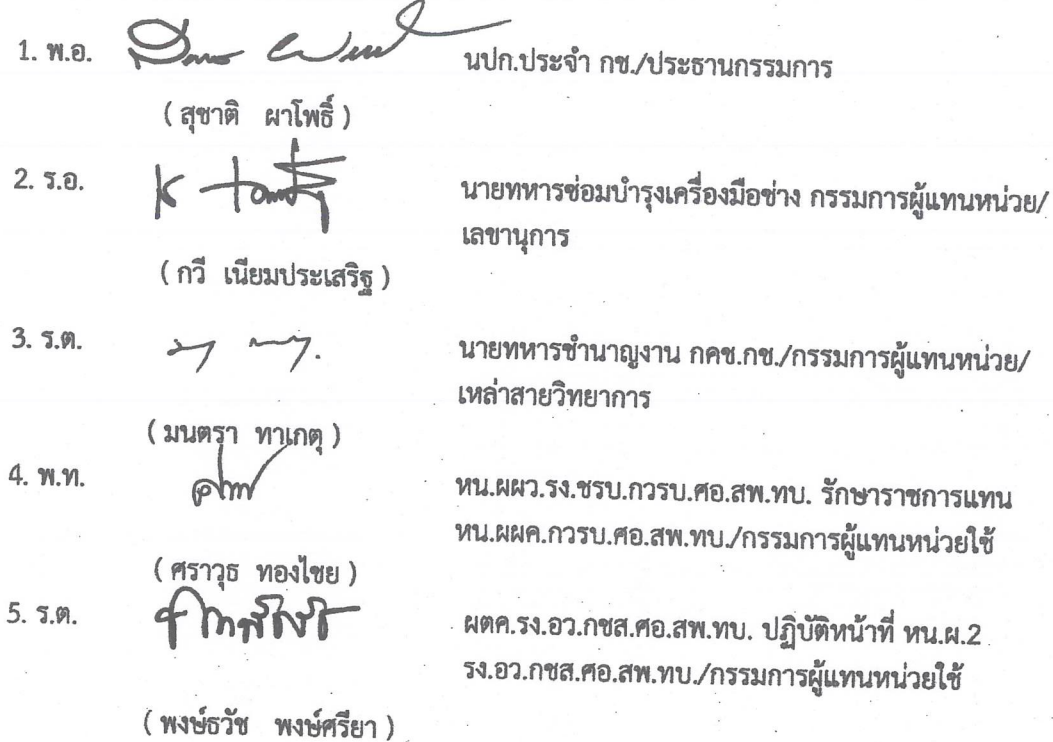 1. พ.อ. นปก.ประจำ กช./ประธานกรรมการ
( สุชาติ ผาโพธิ์ )
2. ร.อ. นายทหารซ่อมบำรุงเครื่องมือช่าง กรรมการผู้แทนหน่วย/
เลขานุการ
( กวี เนียมประเสริฐ )
3. ร.ต. นายทหารชำนาญงาน กคช.กช./กรรมการผู้แทนหน่วย/
เหล่าสายวิทยาการ
( มนตรา ทาเกตุ )
4. พ.ท. หน.ผผว.รง.ชรบ.กวรบ.ศอ.สพ.ทบ. รักษาราชการแทน
หน.ผผค.กวรบ.ศอ.สพ.ทบ./กรรมการผู้แทนหน่วยใช้
( ศราวุธ ทองไชย )
5. ร.ต. ผตค.รง.อว.กซส.ศอ.สพ.ทบ. ปฏิบัติหน้าที่ หน.ผ.2
รง.อว.กซส.ศอ.สพ.ทบ./กรรมการผู้แทนหน่วยใช้
( พงษ์ธวัช พงษ์ศรียา )